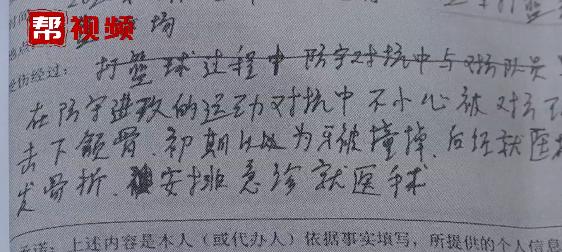 帮视频
场
受伤经过：打篮球过程中防守对抗中与对方队员
在防守进攻的运动对抗中不小心被对方
击下颌骨，初期以为牙被撞掉，后经就医
发骨折，安排急诊就医手术
承诺：上述内容是本人（或代办人）依据事实填写，所提供的个人信息